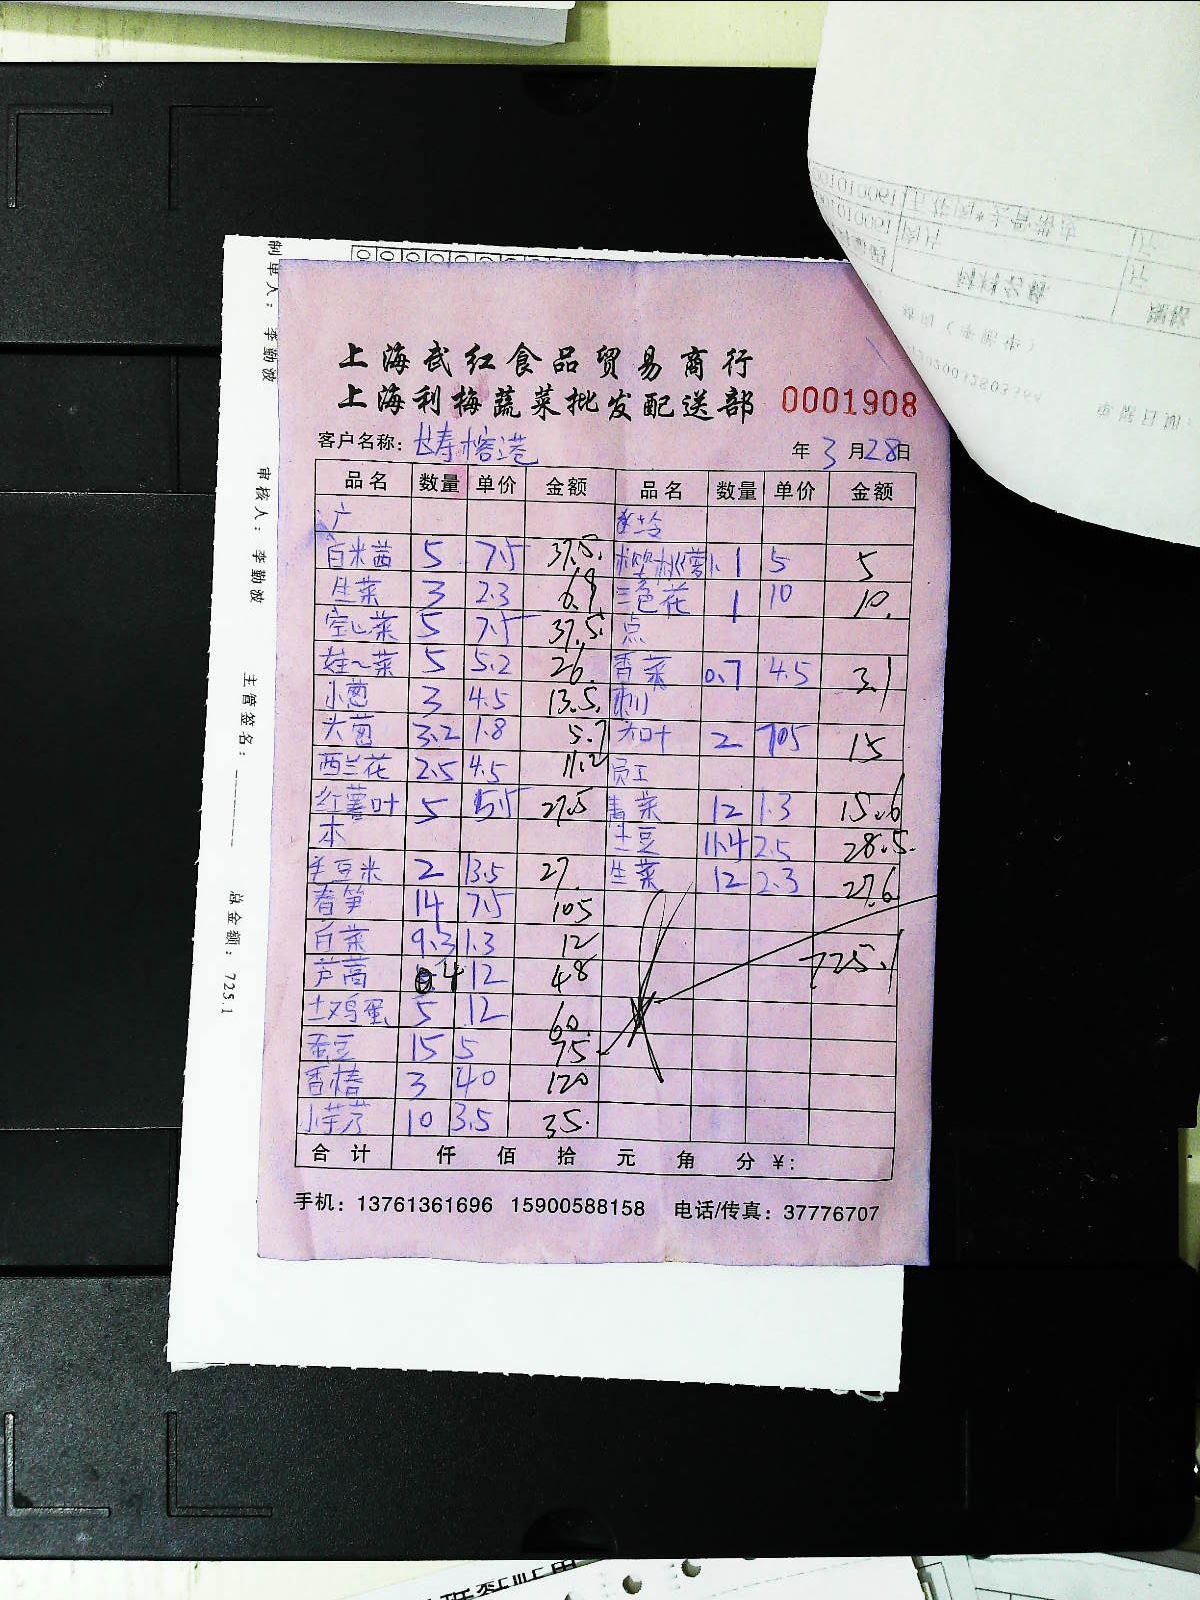 制单人：李勤波
审核人：李勤波
主管签名：
总金额：725.1
上海武红食品贸易商行
上海利梅蔬菜批发配送部 0001908
客户名称： 年 3 月 28 日
品名 数量 单价 金额 品名 数量 单价 金额
广
白米茜 5 7.5 37.5. 1 5 5
生菜 3 2.3 6.9 三色花 1 10 10.
空心菜 5 7.5 37.5. 点
娃~菜 5 5.2 26. 香菜 0.7 4.5 3.1
小葱 3 4.5 13.5. 刺
大葱 3.2 1.8 5.7 2 7.5 15
西兰花 2.5 4.5 11.2 员工
红薯叶 5 5.5 27.5 青菜 12 1.3 15.6
本 土豆 11.4 2.5 28.5.
毛豆米 2 13.5 27. 生菜 12 2.3 27.6
春笋 14 7.5 105
白菜 9.3 1.3 12 725.1
芦蒿 4 12 48
土鸡蛋 5 12 60.
蚕豆 15 5 75
香椿 3 40 120
小芋艿 10 3.5 35.
合计 仟 佰 拾 元 角 分 ¥:
手机：13761361696 15900588158 电话/传真：37776707